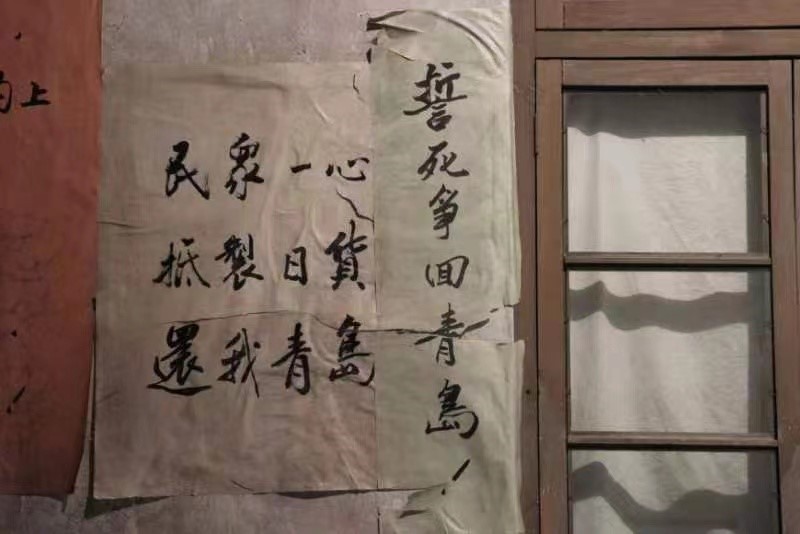 民衆一心
抵製日貨
還我青島
誓死爭回青島！
上